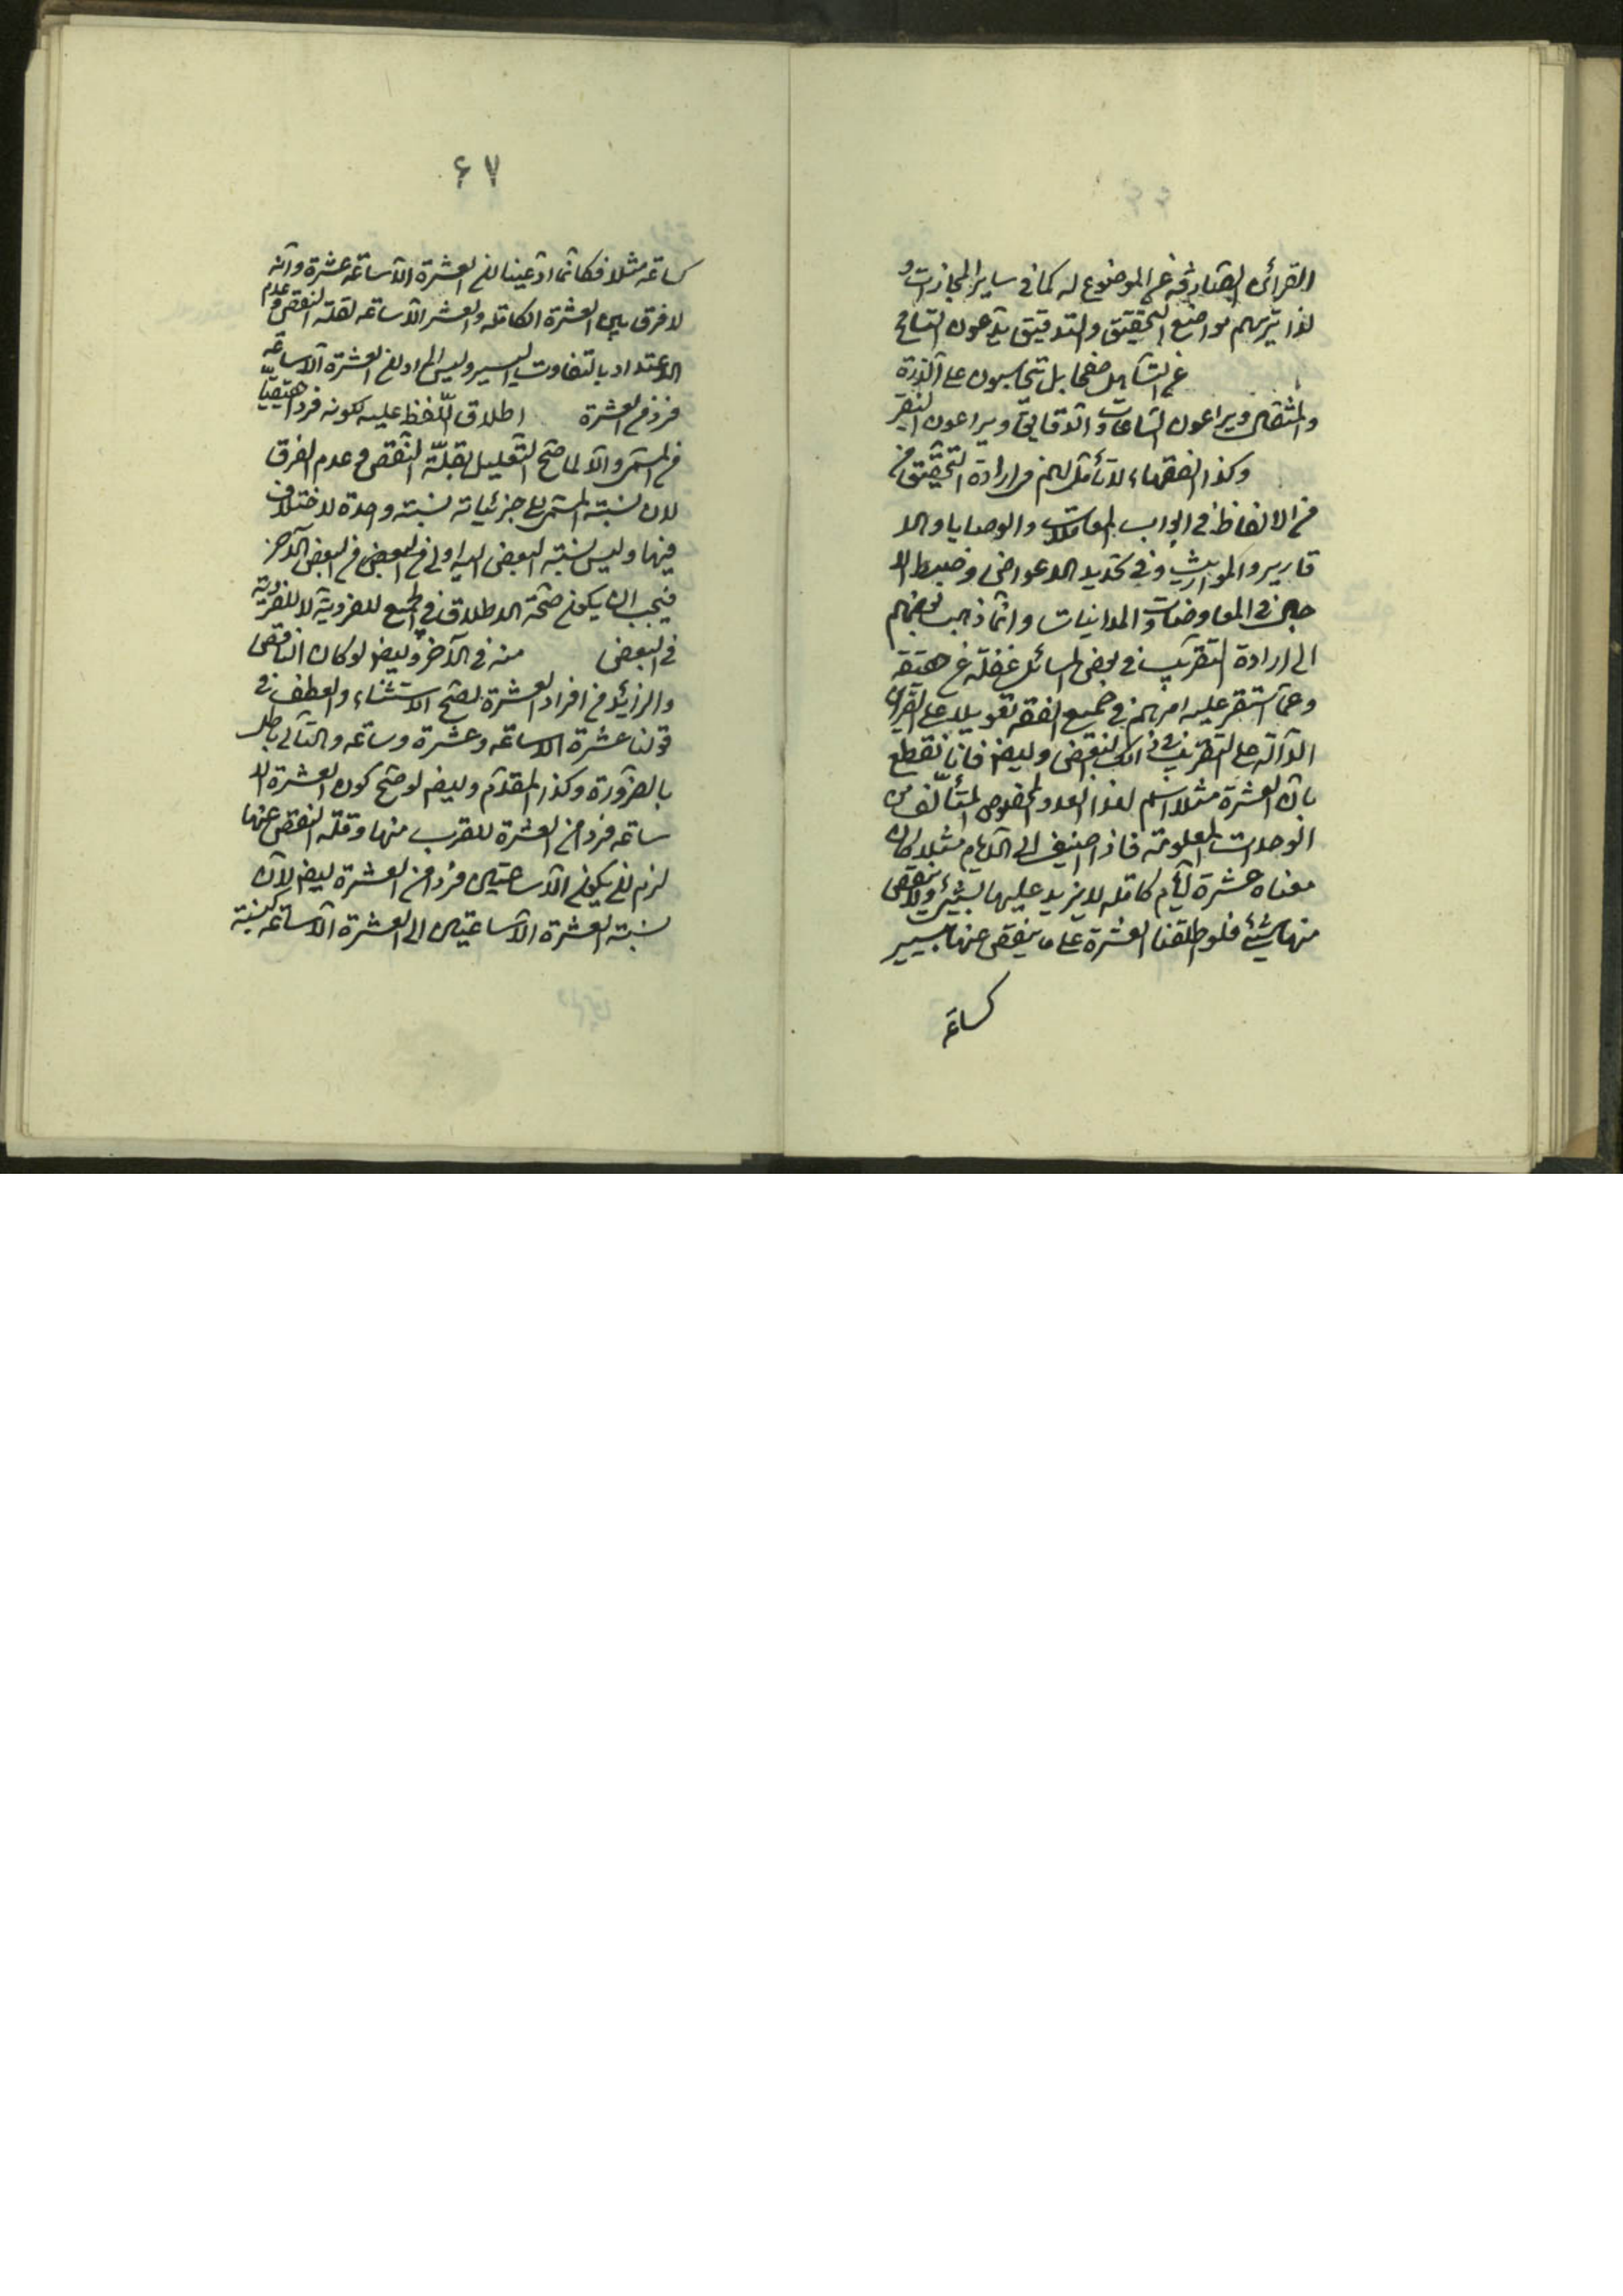 القرائن الصارفة عن الموضوع له كما في ساير المجازات و
لذا تريهم مواضع التحقيق والتدقيق يدعون التسامح
عن التساهل صفحا بل يتحاسبون على الذرة
والمثقال ويراعون الساعات والدقايق ويراعون النقير
وكذا الفقهاء لا تأمل لهم في ارادة التحقيق من
من الالفاظ في ابواب المعاملات والوصايا والا
قارير والمواريث وفي تحديد الاعواض وضبط الا
جال في المعاوضات والمداينات وانما ذهب بعضهم
الى ارادة التقريب في بعض المسائل غفلة عن حقيقة
وعما استقر عليه امرهم في جميع الفقه تعويلا على القرائن
الدالة على التقريب في ذلك البعض وايضا فانا نقطع
بان العشرة مثلا اسم لهذا العدد المخصوص المتألف من
الوحدات المعلومة فاذا اضيف الى الايام مثلا كان
معناه عشرة ايام كاملة لا يزيد عليها بشئ ولا ينقص
منها شئ فلو اطلقنا العشرة على ما ينقص عنها بيسير
كساعة
۶۷
كساعة مثلا فكانما ادعينا ان العشرة الا ساعة عشرة وانه
لا فرق بين العشرة الكاملة والعشر الا ساعة لقلة النقص و عدم
الاعتداد بالتفاوت اليسير وليس المراد ان العشرة الا ساعة
فرد من العشرة اطلاق اللفظ عليه لكونه فردا حقيقيا
من المسمى والا لما صح التعليل بقلة النقص و عدم الفرق
لان نسبة المسمى الى جزئياته نسبة واحدة لا اختلاف
فيها وليس نسبة البعض اليه اولى من البعض من البعض الآخر
فيجب ان يكون صحة الاطلاق في الجميع للفردية لا للفردية
في البعض منه في الآخر وايضا لو كان الناقص
والزايد من افراد العشرة لصح الاستثناء والعطف في
قولنا عشرة الا ساعة وعشرة وساعة والتالي باطل
بالضرورة وكذا المقدم وايضا لو صح كون العشرة الا
ساعة فردا من العشرة للقرب منها وقلة النقص عنها
لزم ان يكون الا ساعتين فردا من العشرة ايضا لان
نسبة العشرة الا ساعتين الى العشرة الا ساعة كنسبة